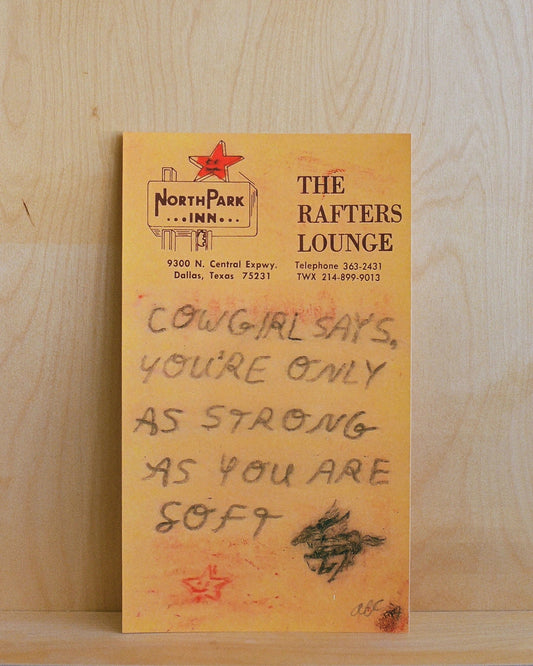 NORTHPARK
...INN...
THE
RAFTERS
LOUNGE
9300 N. Central Expwy.
Dallas, Texas 75231
Telephone 363-2431
TWX 214-899-9013
COWGIRL SAYS,
YOU'RE ONLY
AS STRONG
AS YOU ARE
SOFT
ABC